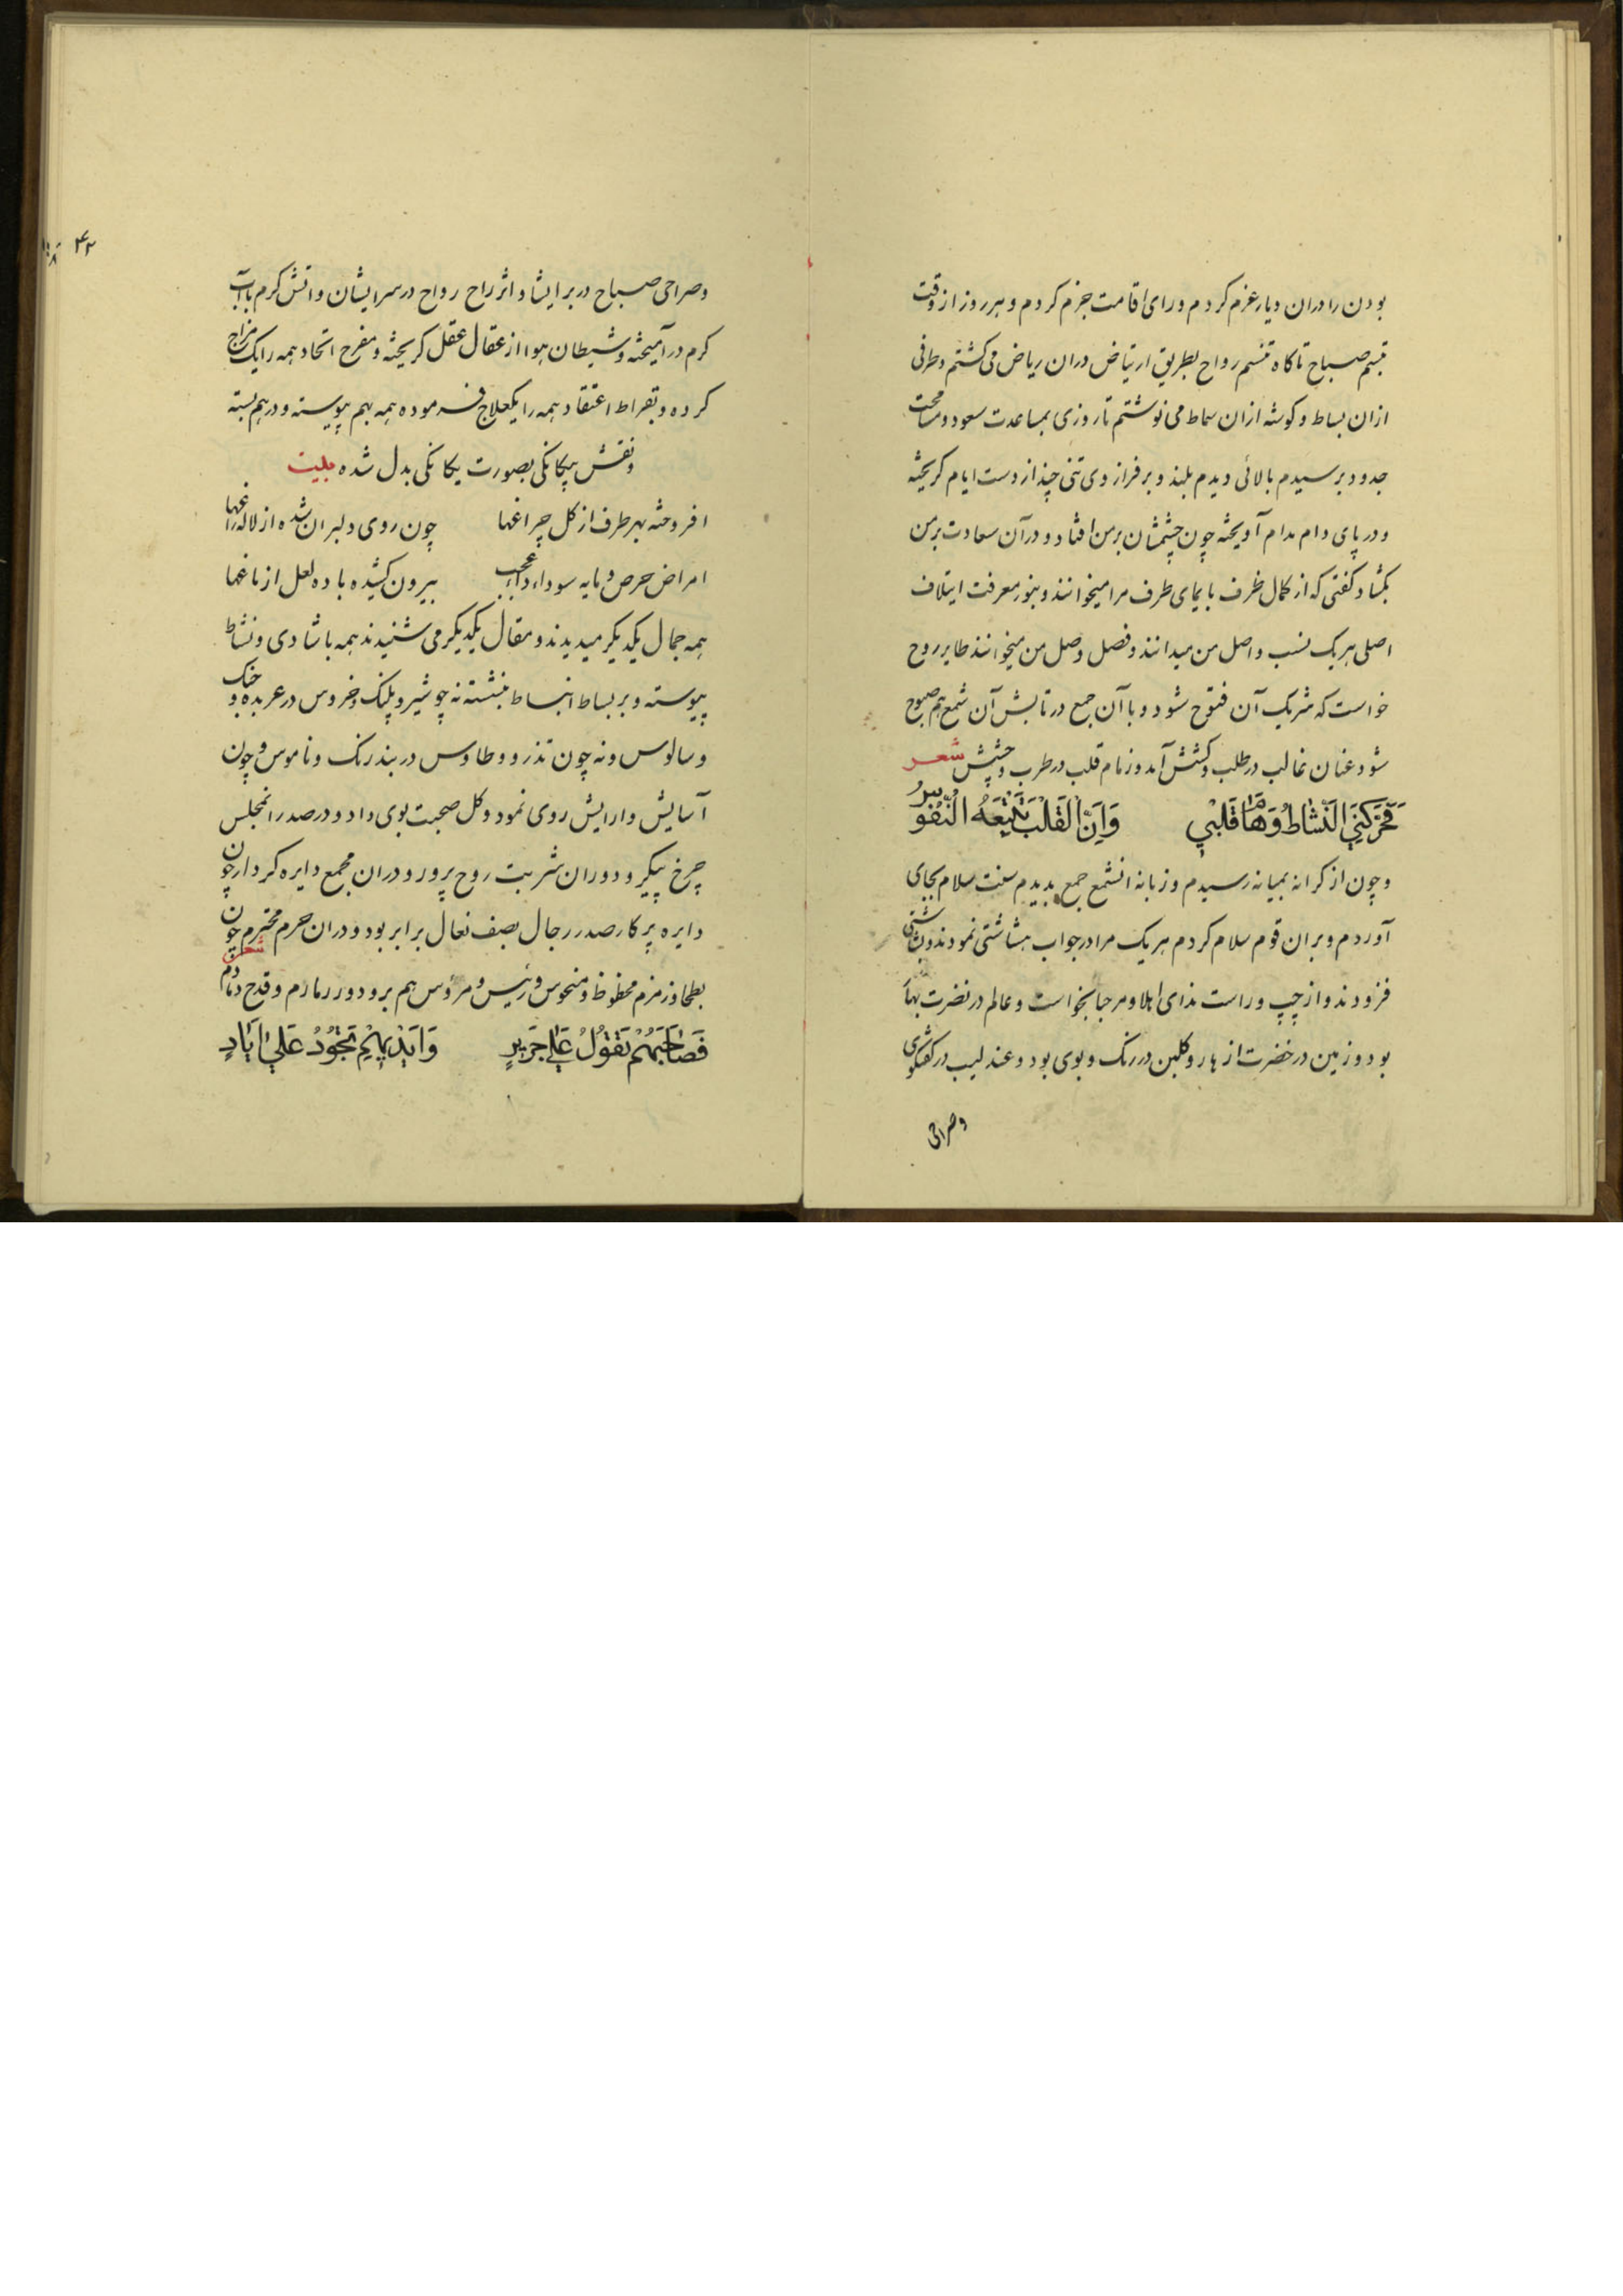 بودن را دران دیار عزم کردم و رای اقامت جزم کردم و هر روز از وقت
تبسم صباح تا کاه تنسم رواح بطریق ارتیاض دران ریاض می کشتم و طرفی
ازان بساط و کوشه ازان سماط می نوشتم تا روزی بمساعدت سعود و مسامحت
جدود برسیدم بالائی دیدم بلند و بر فراز وی تنی چند از دست ایام کریخته
و در پای دام مدام آویخته چون چشمشان بر من افتاد و در آن سعادت بر من
بکشاد کفتی که از کمال ظرف بایمای طرف مرا میخوانند و بنور معرفت ایتلاف
اصلی هر یک نسب و اصل من میدانند و فصل وصل من میخوانند طایر روح
خواست که شریک آن فتوح شود و با آن جمع در تابش آن شمع هم صبوح
شود عنان غالب در طلب و کشش آمد و زمام قلب در طرب و چشش شعر
فحرکنی النشاط وهاٰ قلبی وان القلب تتبعه النفور
و چون از کرانه بمیانه رسیدم و زبانه انشمع جمع بدیدم سنت سلام بجای
آوردم و بران قوم سلام کردم هر یک مرا در جواب هشاشتی نمودند و بشاشتی
فزودند و از چپ و راست ندای اهلا و مرحبا بخواست و عالم در نضرت بهار
بود و زمین در خضرت ازهار و کلبن در رنک و بوی بود و عندلیب در کفتکوی
و صراحی
۴۲
و صراحی صباح در بر ایشا و اثر راح رواح در سر ایشان و اتش کرم با آب
کرم در آمیخته و شیطان هوا از عقال عقل کریخته و مفرح اتحاد همه را یک مزاج
کرده و بقراط اعتقاد همه را یکعلاج فرموده همه بهم پیوسته و درهم بسته
و نقش بیکانکی بصورت یکانکی بدل شده بیت
افروخته بهر طرف از کل چراغها چون روی دلبران شده از لاله راغها
امراض حرص و مایه سوداء عجب بیرون کشیده باده لعل از دماغها
همه جمال یکدیکر میدیدند و مقال یکدیکر می شنیدند همه با شادی و نشاط
پیوسته و بر بساط انبساط بنشسته نه چو شیر و پلنک و خروس در عربده و جنک
و سالوس و نه چون تذرو و طاوس در بند رنک و ناموس و چون
آسایش و ارایش روی نمود و کل صحبت بوی داد و در صدر انمجلس
چرخ پیکر و دوران شربت روح پرور و دران مجمع دایره کردار چون
دایره پرکار صدر رجال بصف نعال برابر بود و دران حرم محترم چون
بطحا و زمزم محظوظ و منحوس و رئیس و مرؤس هم برو دور رمارم و قدح دمادم شعر
فصاحبهم تقول علی جریر وایدیهم تجود علی ایاد